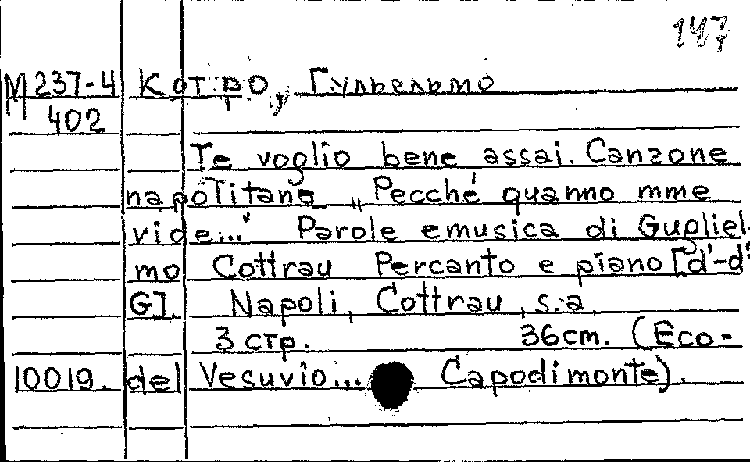 147
М 237-4 Котро, Гульельмо
402
Te voglio bene assai. Canzone
napolitana „Pecché quanno mme
vide..." Parole e musica di Gugliel-
mo Cottrau Per canto e piano [d'-d²
G]. Napoli, Cottrau, s.a.
3 стр. 36 cm. (Eco-
10019. del Vesuvio... Capodimonte).